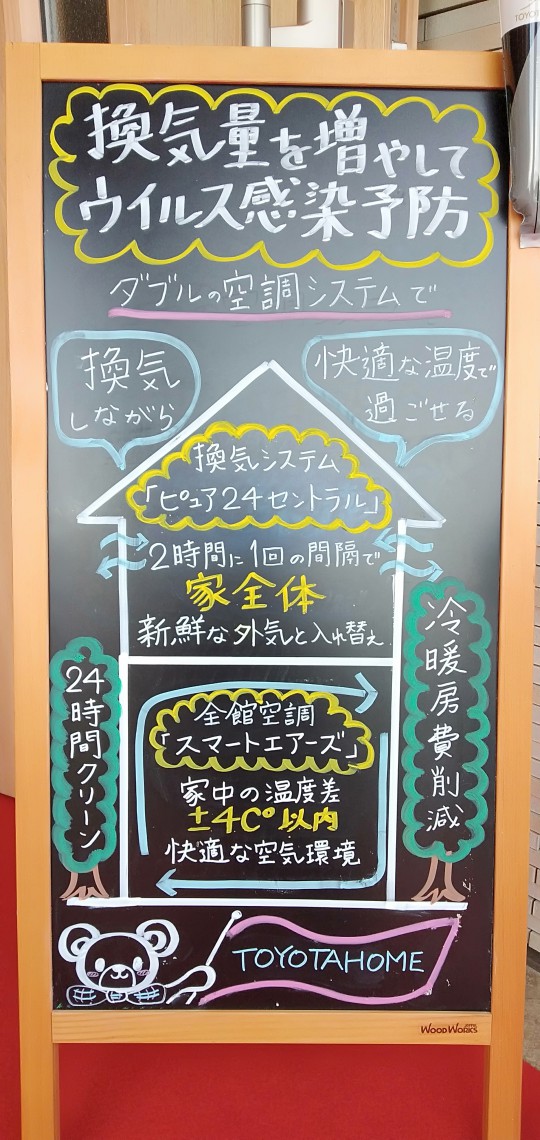 換気量を増やして
ウイルス感染予防
ダブルの空調システムで
換気
しながら
快適な温度で
過ごせる
換気システム
「ピュア24セントラル」
2時間に1回の間隔で
家全体
新鮮な外気と入れ替え
24時間クリーン
冷暖房費削減
全館空調
「スマートエアーズ」
家中の温度差
±4C°以内
快適な空気環境
TOYOTAHOME
WOODWORKS